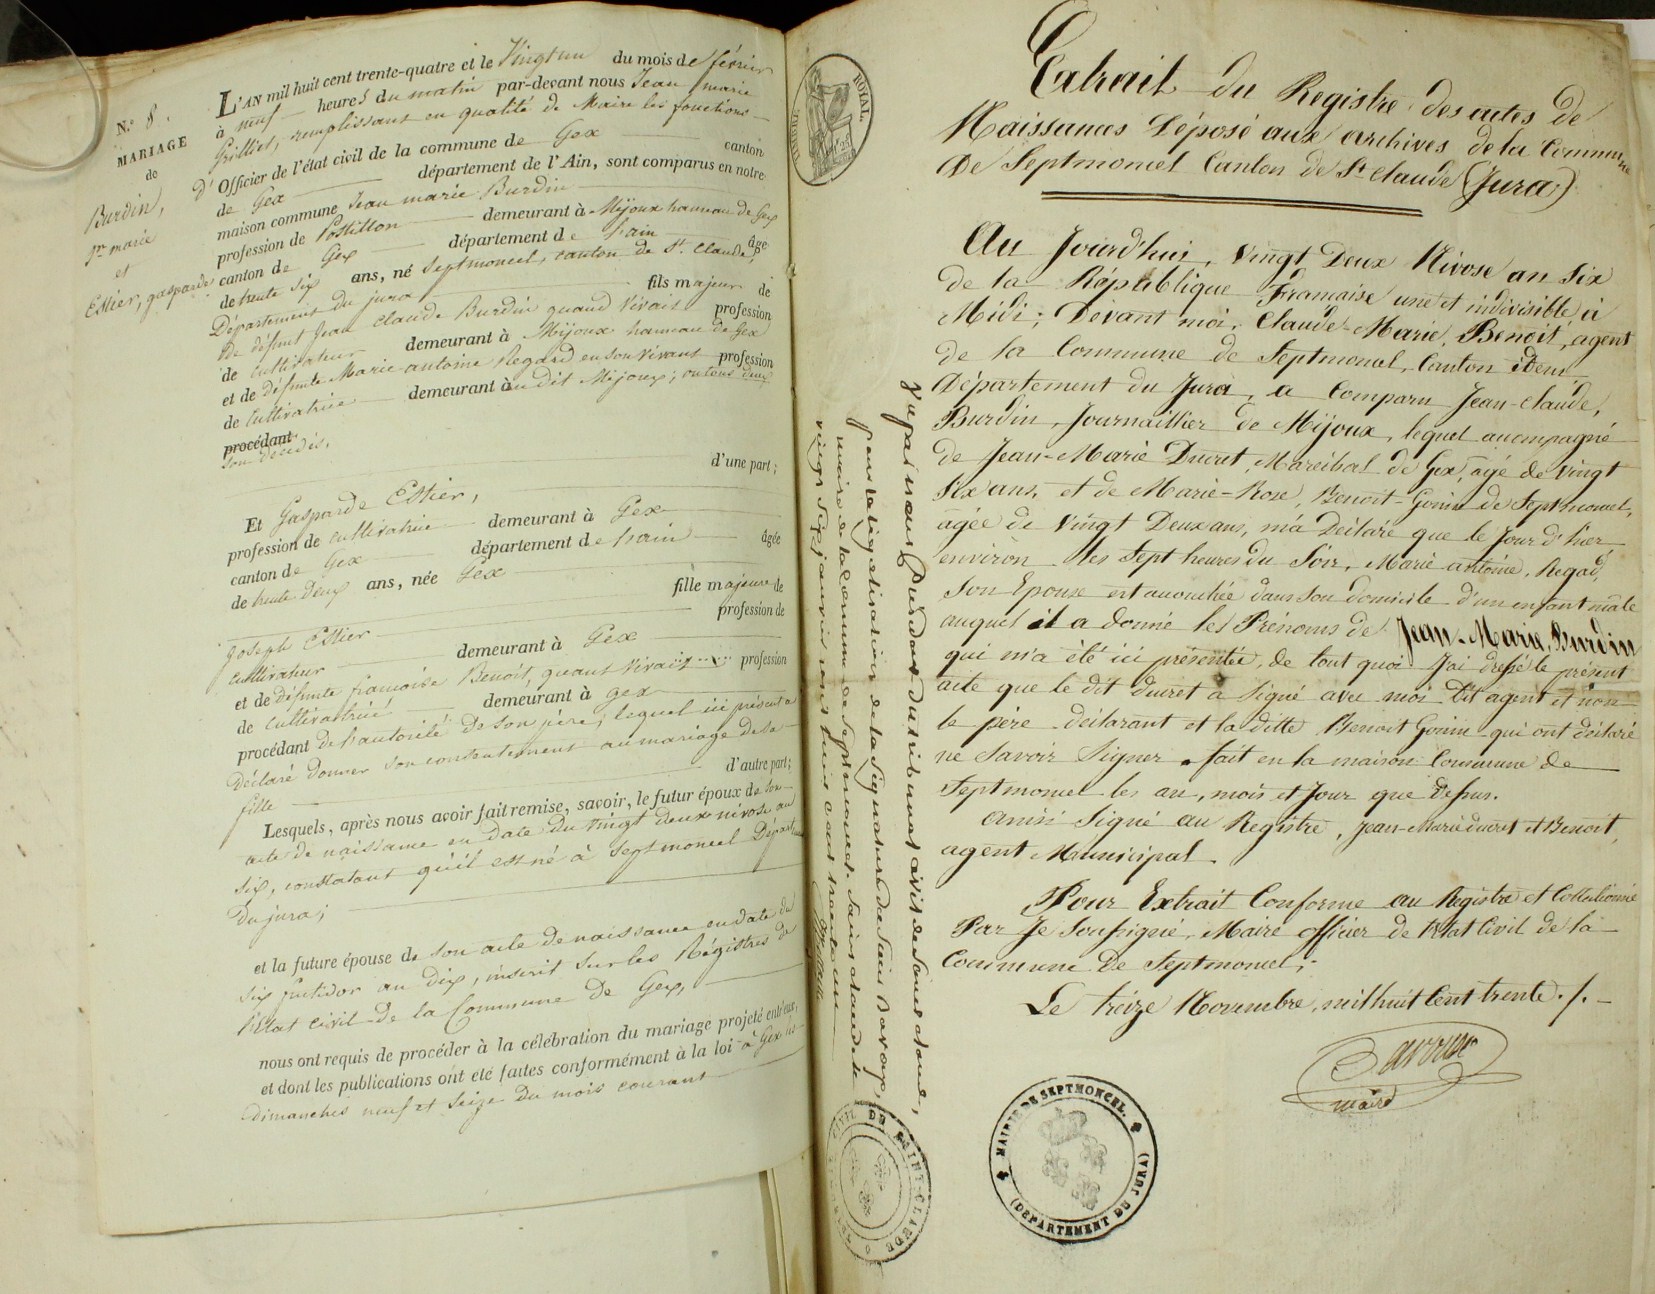 N.º 8.
MARIAGE
de
Burdin,
jn marie
et
Estier, gasparde
L'AN mil huit cent trente-quatre et le Vingt un du mois de février
à neuf heures du matin par-devant nous Jean marie
Grilliet, remplissant en qualité de Maire les fonctions
d'Officier de l'état civil de la commune de Gex canton
de Gex département de l'Ain, sont comparus en notre
maison commune Jean marie Burdin
profession de Postillon demeurant à Mijoux hameau de Gex
canton de Gex département de l'ain âgé
de trente six ans, né Septmoncel, canton de St. Claude,
Département du jura fils majeur de
de défunt Jean Claude Burdin quand Vivait profession
de Cultivateur demeurant à Mijoux hameau de Gex
et de défunte Marie antoine Regard en son Vivant profession
de Cultivatrice demeurant à udit Mijoux; vu tous deux
procédant
son décédés, d'une part;
Et Gasparde Estier,
profession de cultivatrice demeurant à Gex
canton de Gex département de l'ain âgée
de trente Deux ans, née Gex
fille majeure de
Joseph Estier profession de
Cultivateur demeurant à Gex
et de défunte françoise Benoit, quant Vivait profession
de Cultivatrice demeurant à gex
procédant de l'autorité de son père; lequel ici présent a
Déclaré donner son consentement au mariage de sa
fille d'autre part;
Lesquels, après nous avoir fait remise, savoir, le futur époux de son
acte de naissance en Date du Vingt deux nivose an
Six, constatant qu'il est né à Septmoncel Départ
Du jura;
et la future épouse de son acte de naissance en date du
six fructidor an dix, inscrit sur les Régistres de
l'Etat civil de la Commune de Gex,
nous ont requis de procéder à la célébration du mariage projeté entr'eux,
et dont les publications ont été faites conformément à la loi à Gex les
dimanches neuf et Seize du mois courant
TIMBRE ROYAL.
Extrait du Registre des actes de
Naissances Déposé aux archives de la Commune
De Septmoncel Canton de St Claude (Jura)
Au Jourd'hui, Vingt Deux Nivose an Six
de la République Française une et indivisible à
Midi; Devant moi, Claude-Marie, Benoit, agent
de la Commune de Septmoncel, Canton idem
Département du Jura, a Comparu Jean-Claude,
Burdin, Journaillier de Mijoux, lequel accompagné
de Jean-Marie Ducret, Marécihal de Gex, agé de Vingt
Six ans, et de Marie-Rose, Benoit-Gonin de Septmoncel,
agée de Vingt Deux ans, m'a Déclaré que le Jour d'hier
environ les Sept heures du Soir, Marie antoine, Regad,
Son Epouse est accouchée dans son domicile d'un enfant mâle
auquel il a donné les Prénoms de Jean-Marie, Burdin
qui m'a été ici présentée, de tout quoi J'ai dressé le présent
acte que le dit ducret a Signé avec moi Dit agent et non
le père déclarant et la ditte Benoit Gonin qui ont déclaré
ne Savoir Signer. fait en la maison Commune de
Septmoncel les an, mois et Jour que Dessus.
ainsi Signé au Registre, Jean-Marie ducret et Benoit,
agent Municipal.
Pour Extrait Conforme au Registre et Collationné
Par Je Soussigné, Maire officier de l'état Civil de la
Commune de Septmoncel;
Le treize Novembre, mil huit Cent trente./.
maire
MAIRIE DE SEPTMONCEL.
(DEPARTEMENT DU JURA)
Vu par nous Président du tribunal civil de Saint-claude,
pour la légalisation de la Signature du Sieur
maire de la commune de Septmoncel. Saint claude le
vingt Six janvier mil huit cent trente un
CIVIL DE SAINT-CLAUDE